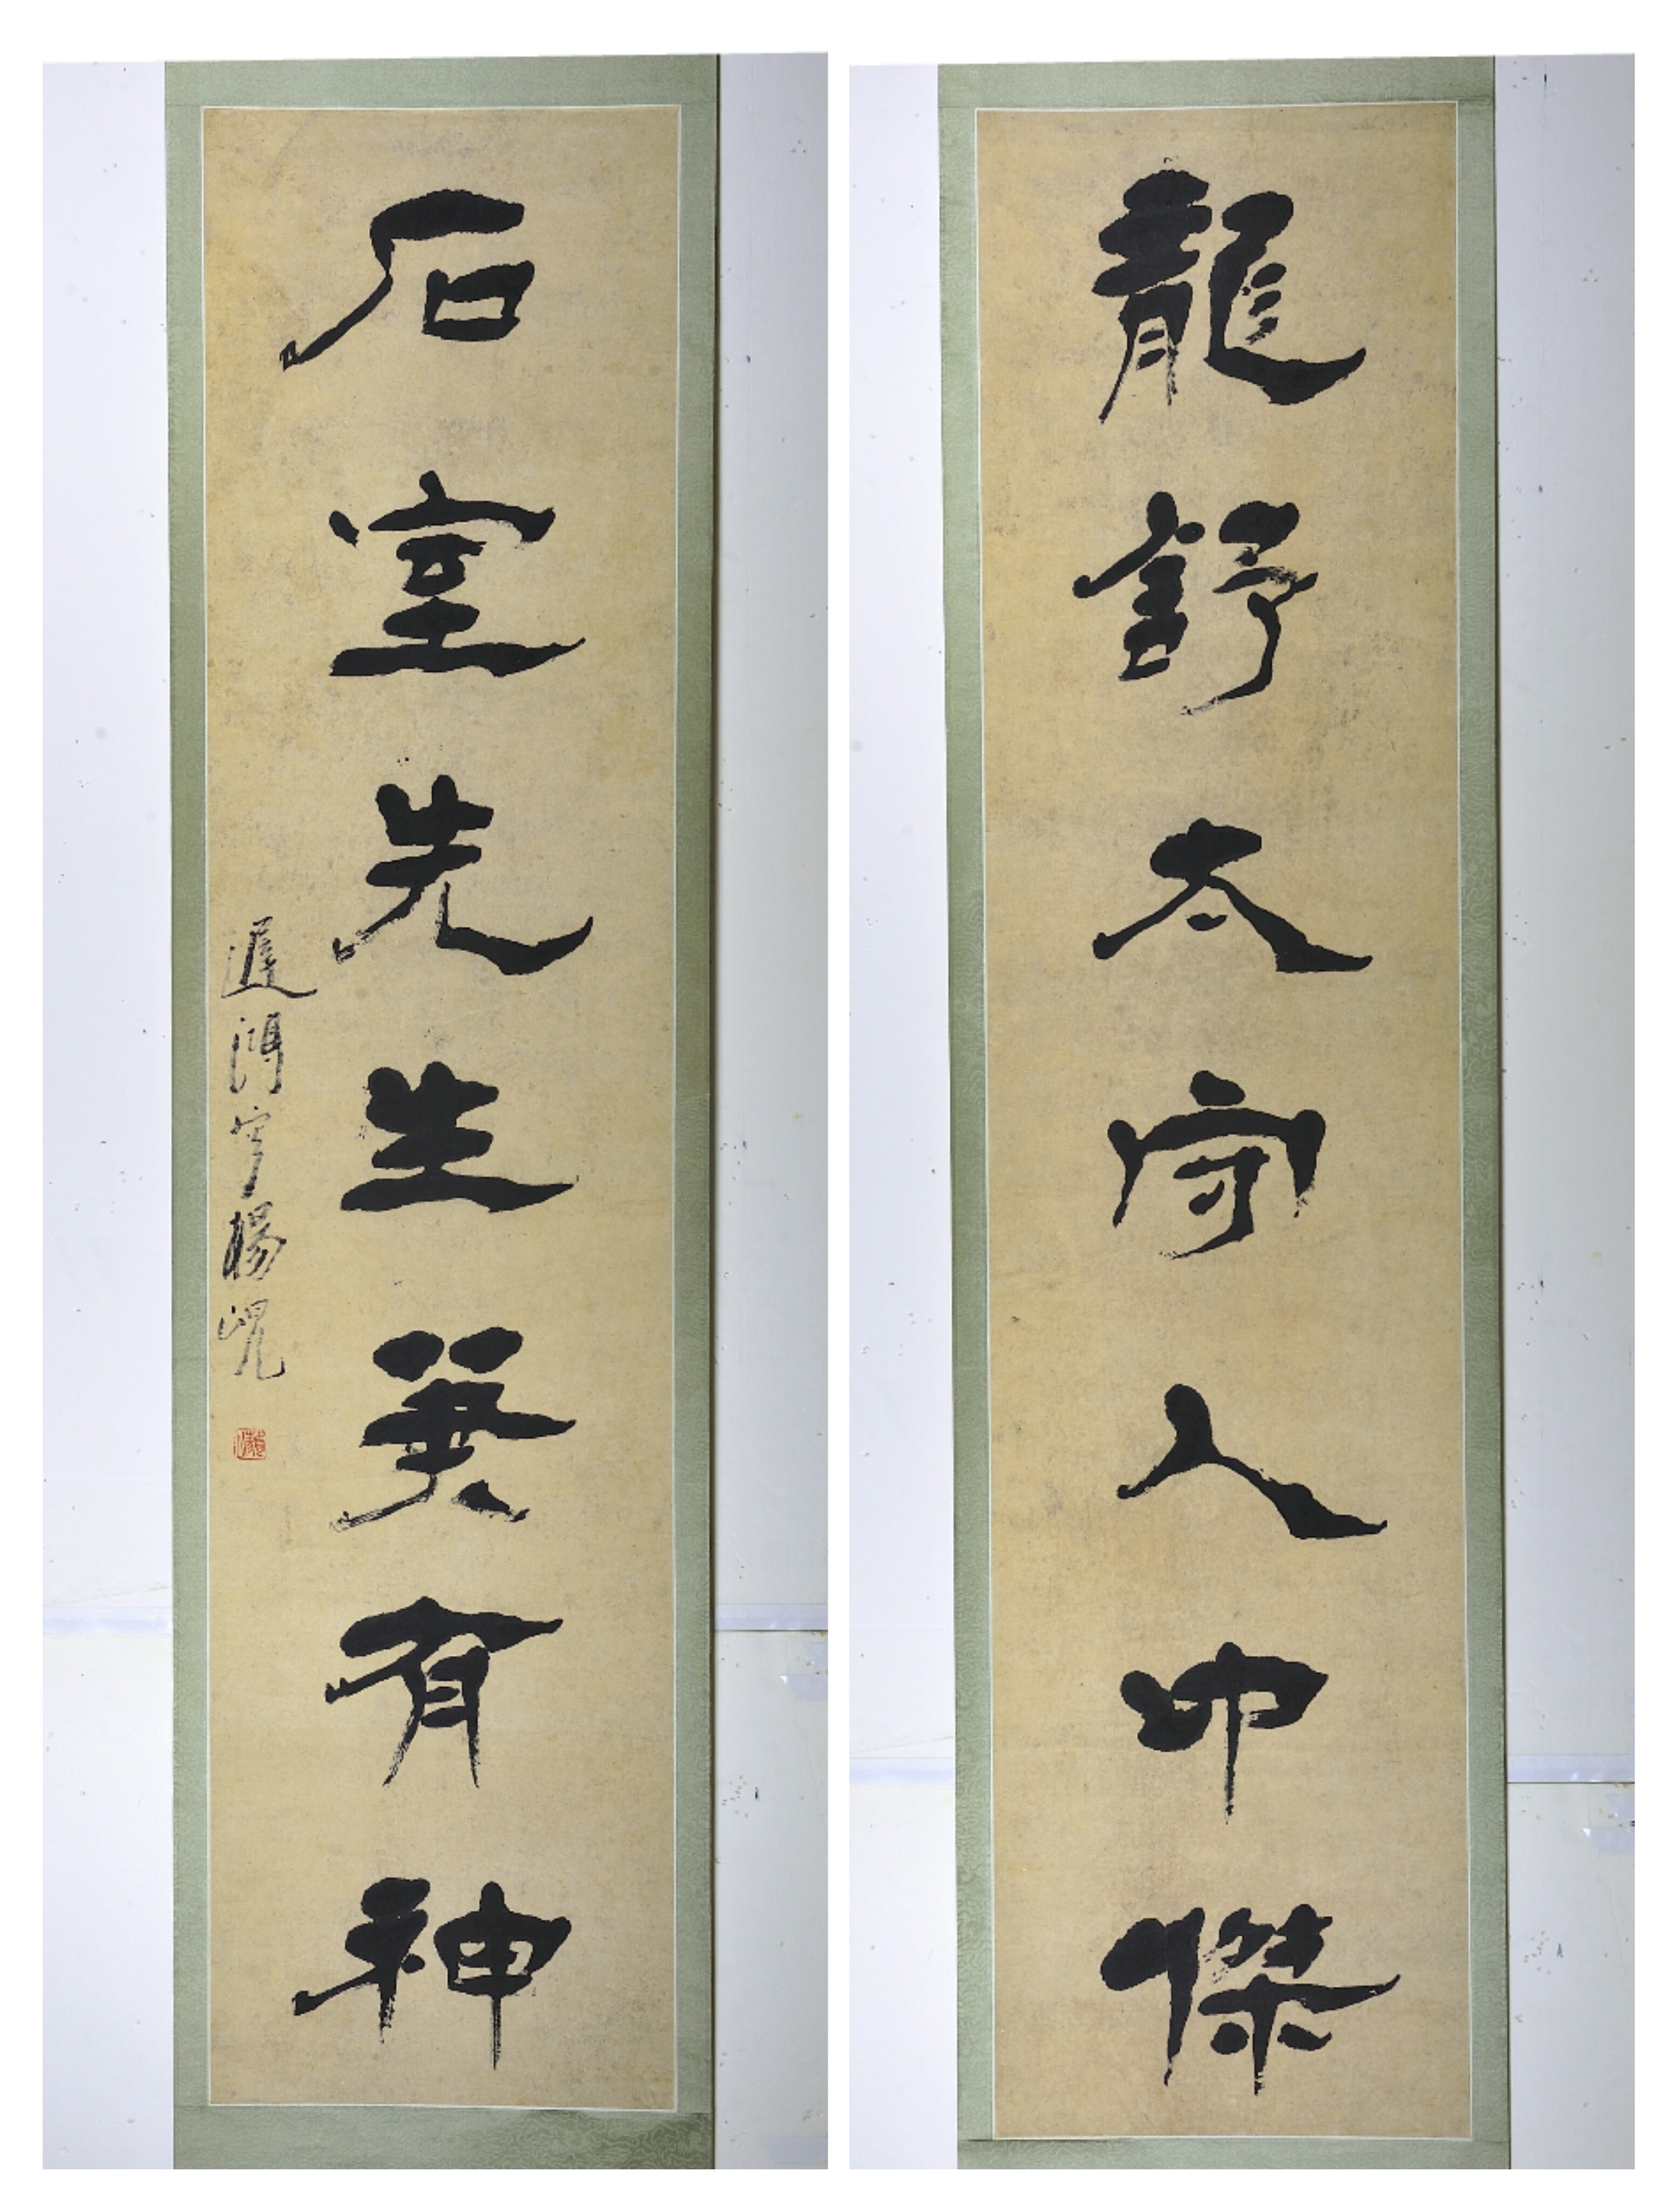 龍舒太守人中傑
石室先生筆有神
遲鴻楊峴